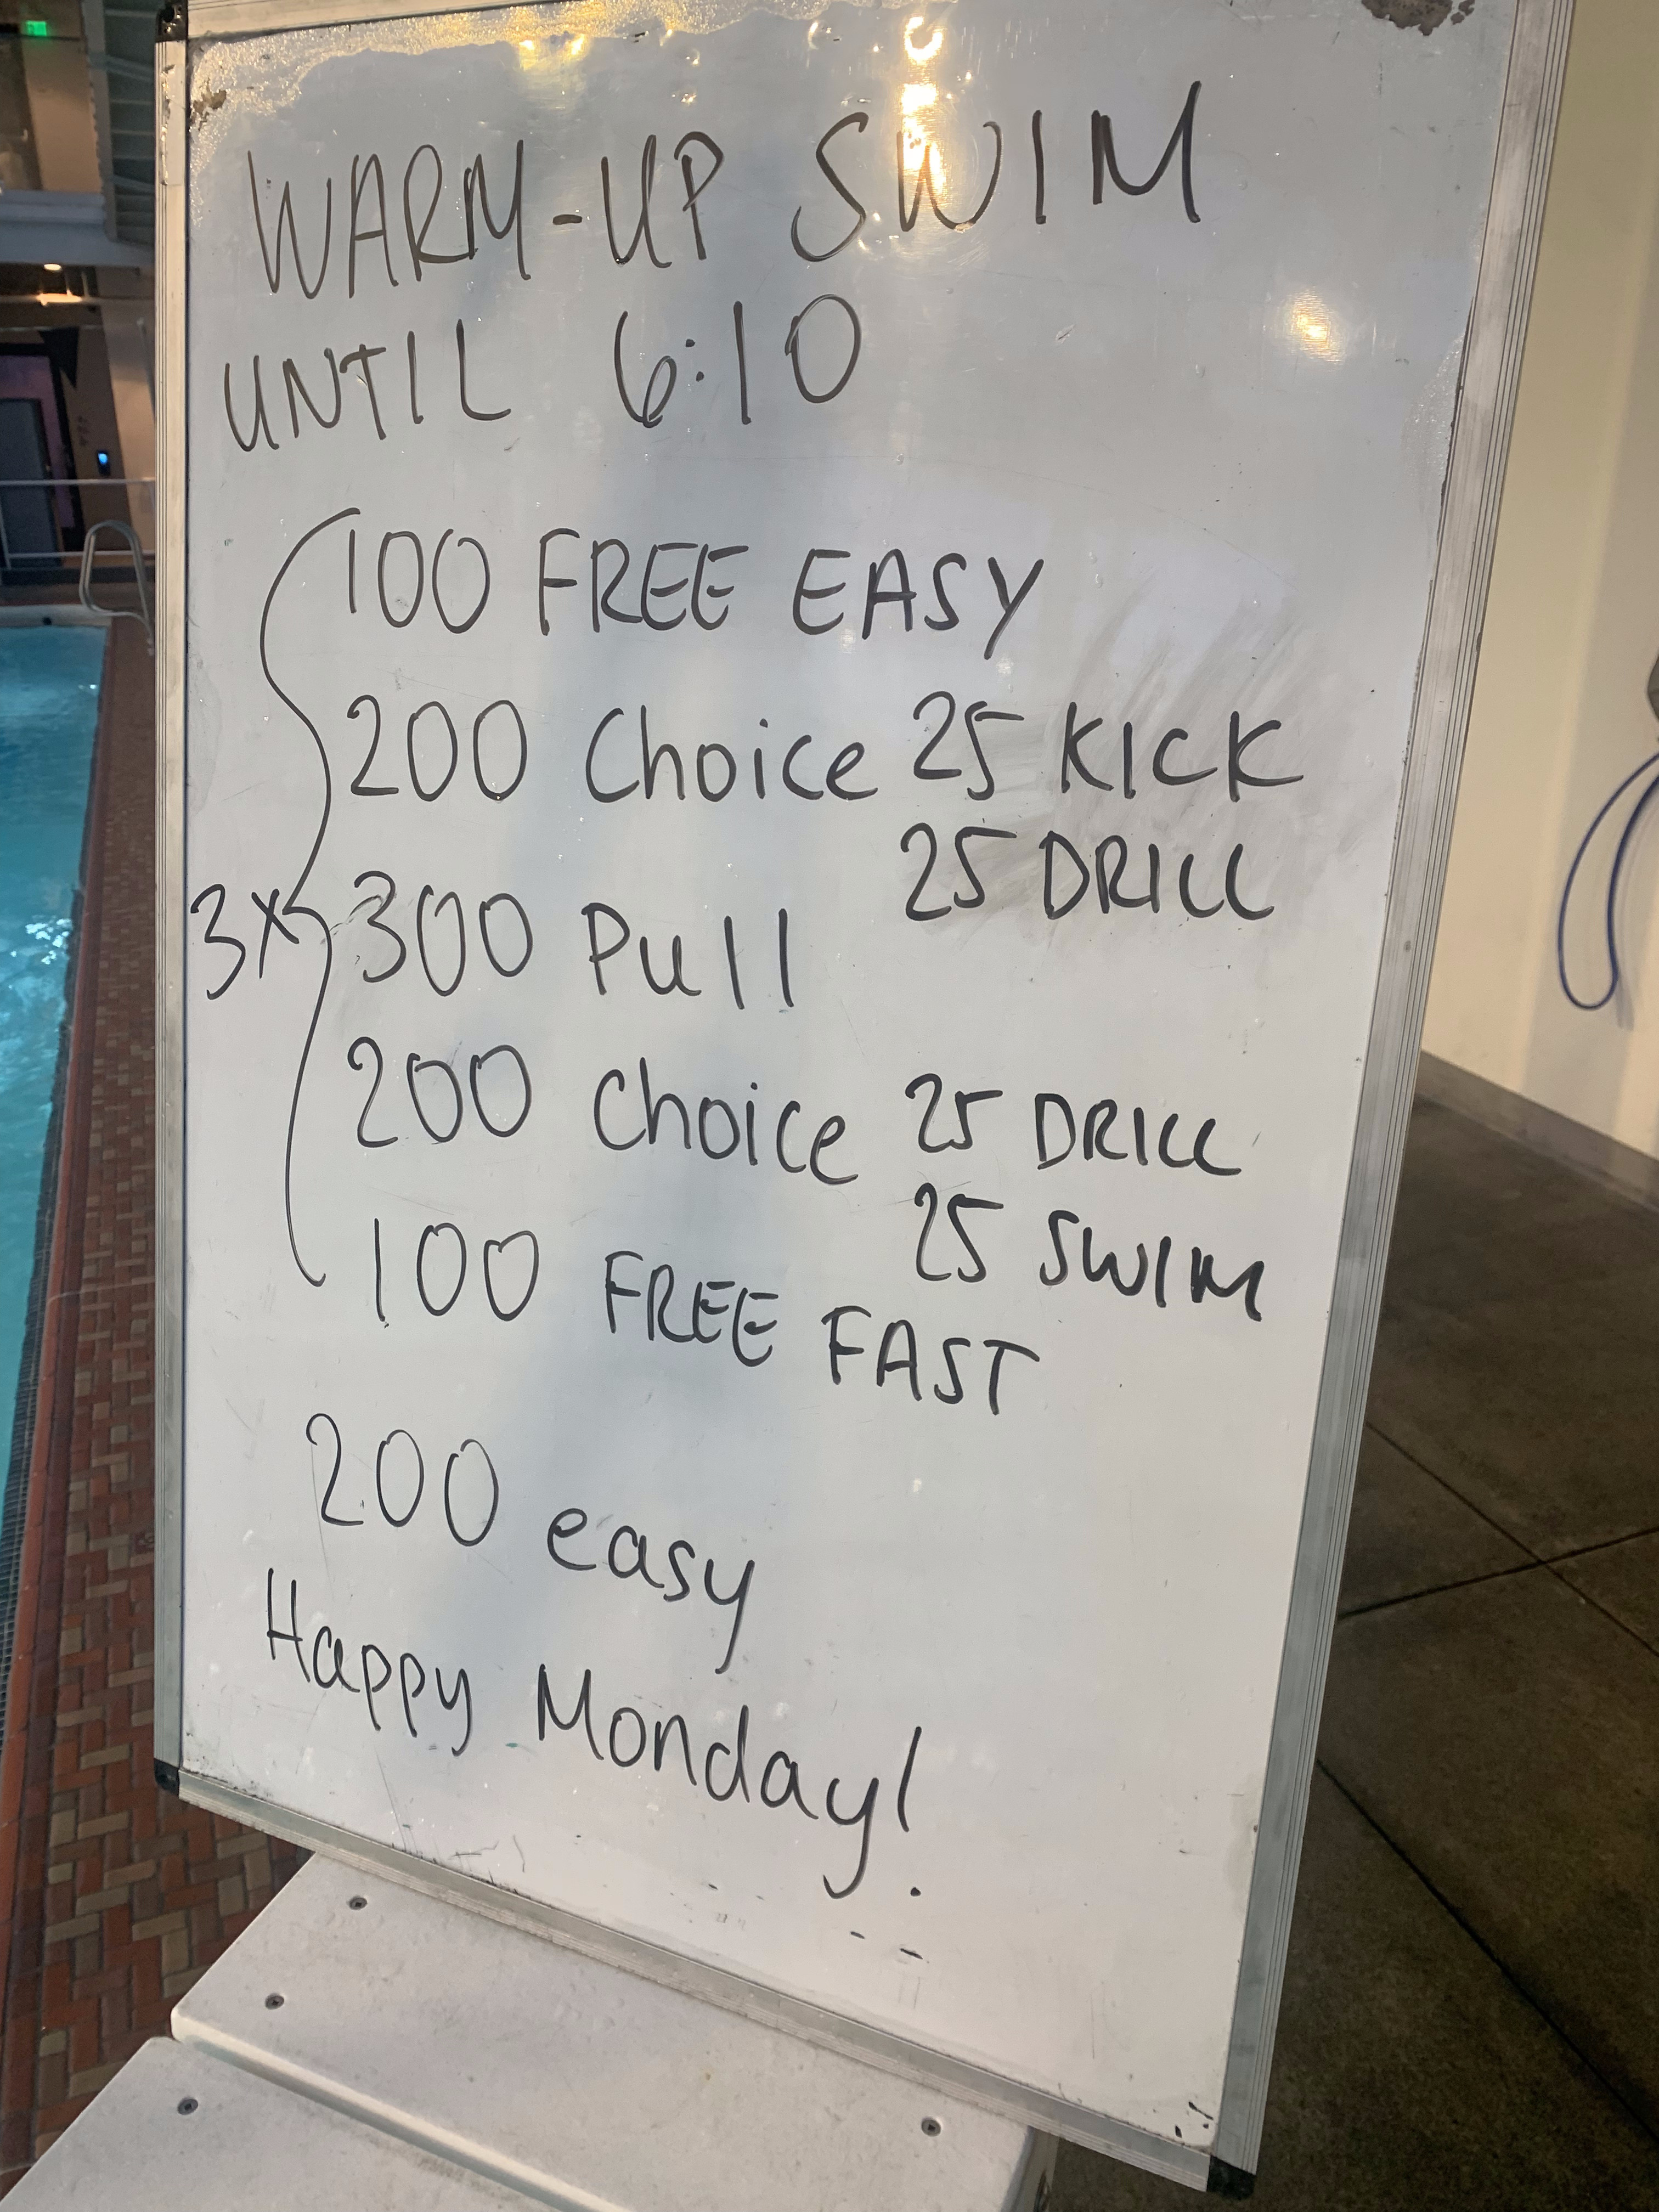 WARM-UP SWIM
UNTIL 6:10
100 FREE EASY
200 Choice 25 KICK
25 DRILL
3x 300 Pull
200 Choice 25 DRILL
25 SWIM
100 FREE FAST
200 easy
Happy Monday!